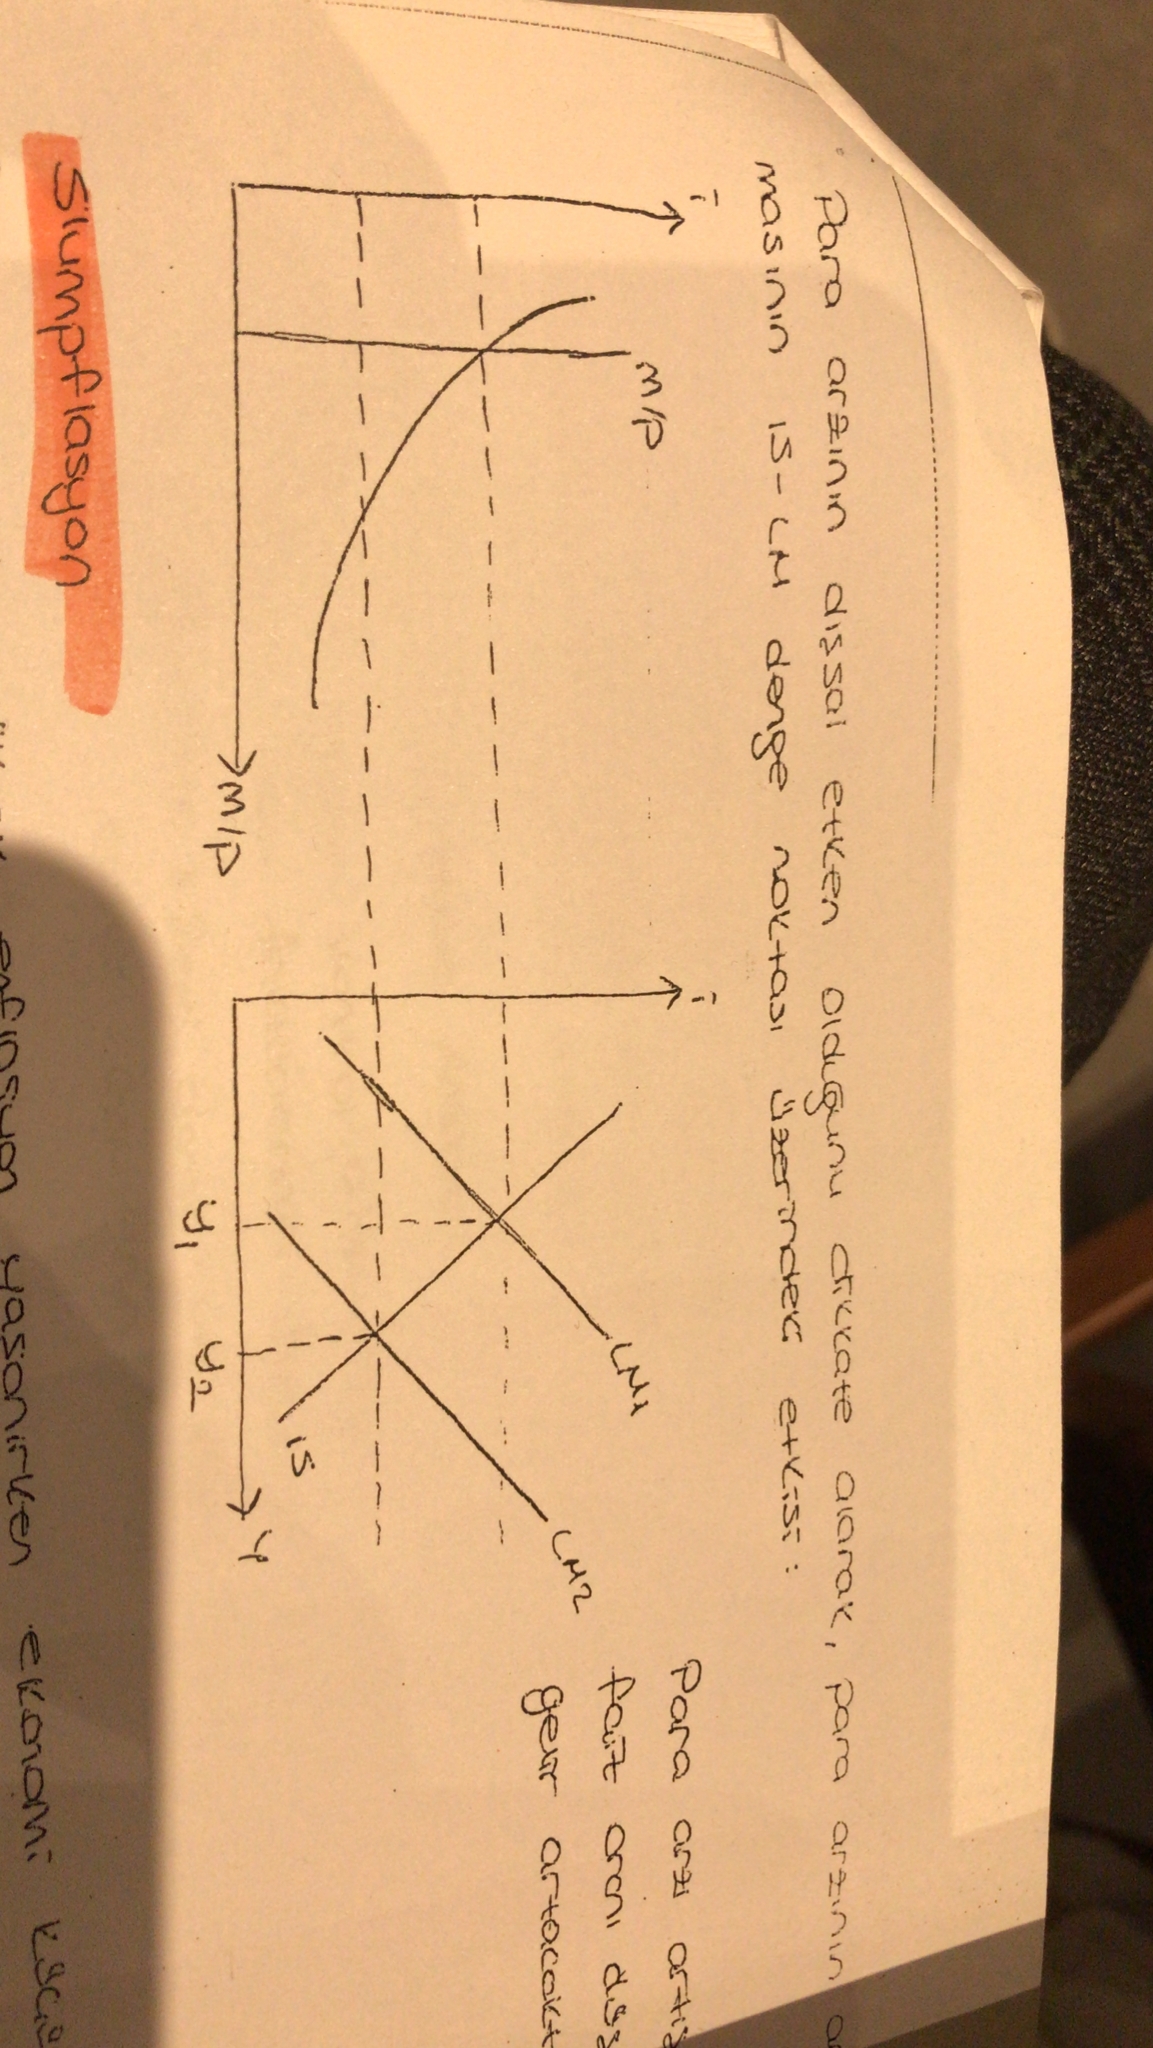 Para arzının dışsal etken olduğunu dikkate alarak, para arzının
masının IS-LM denge noktası üzerindeki etkisi:
i
M/P
M/P
i
LM1
LM2
IS
y1
y2
Y
Para arzı artış
faiz oranı düş
gelir artacakt
Slumpflasyon
enflasyon yaşanırken ekonomi